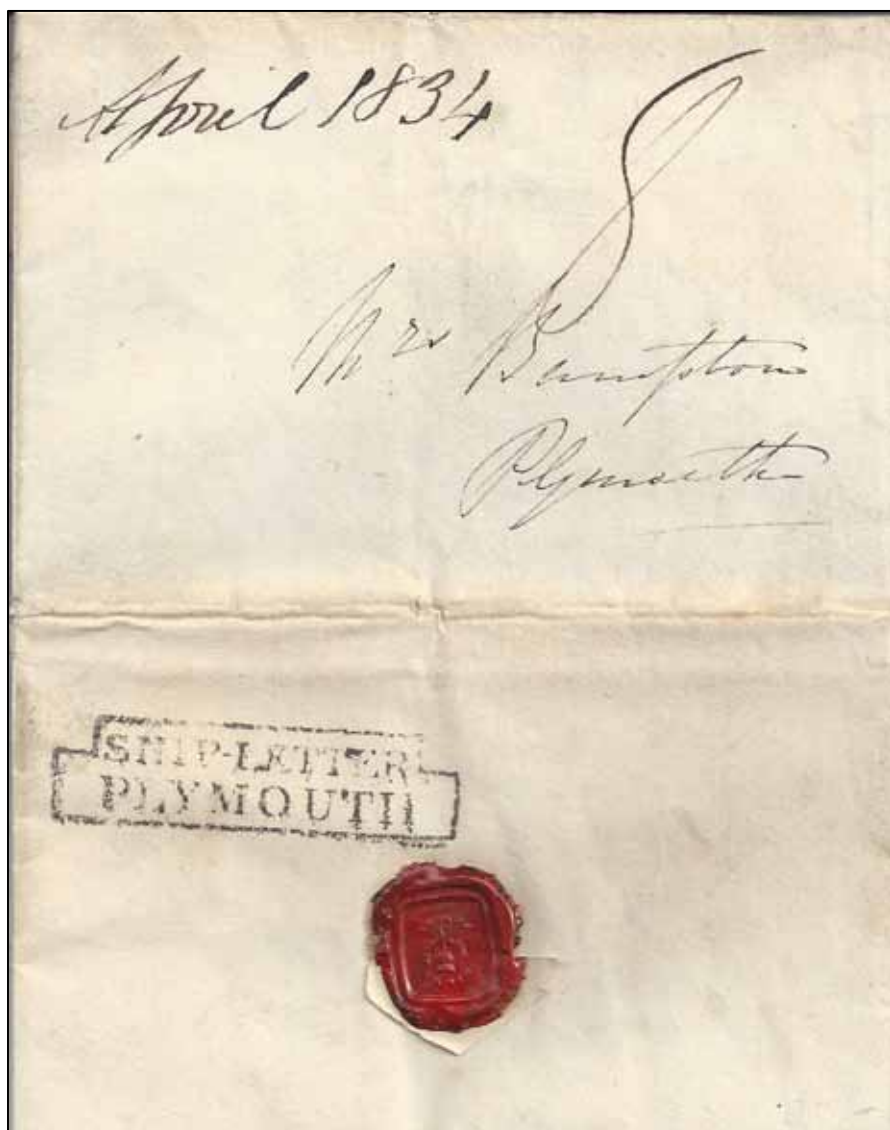 April 1834
8
Mrs Bumpston
Plymouth
SHIP-LETTER
PLYMOUTH